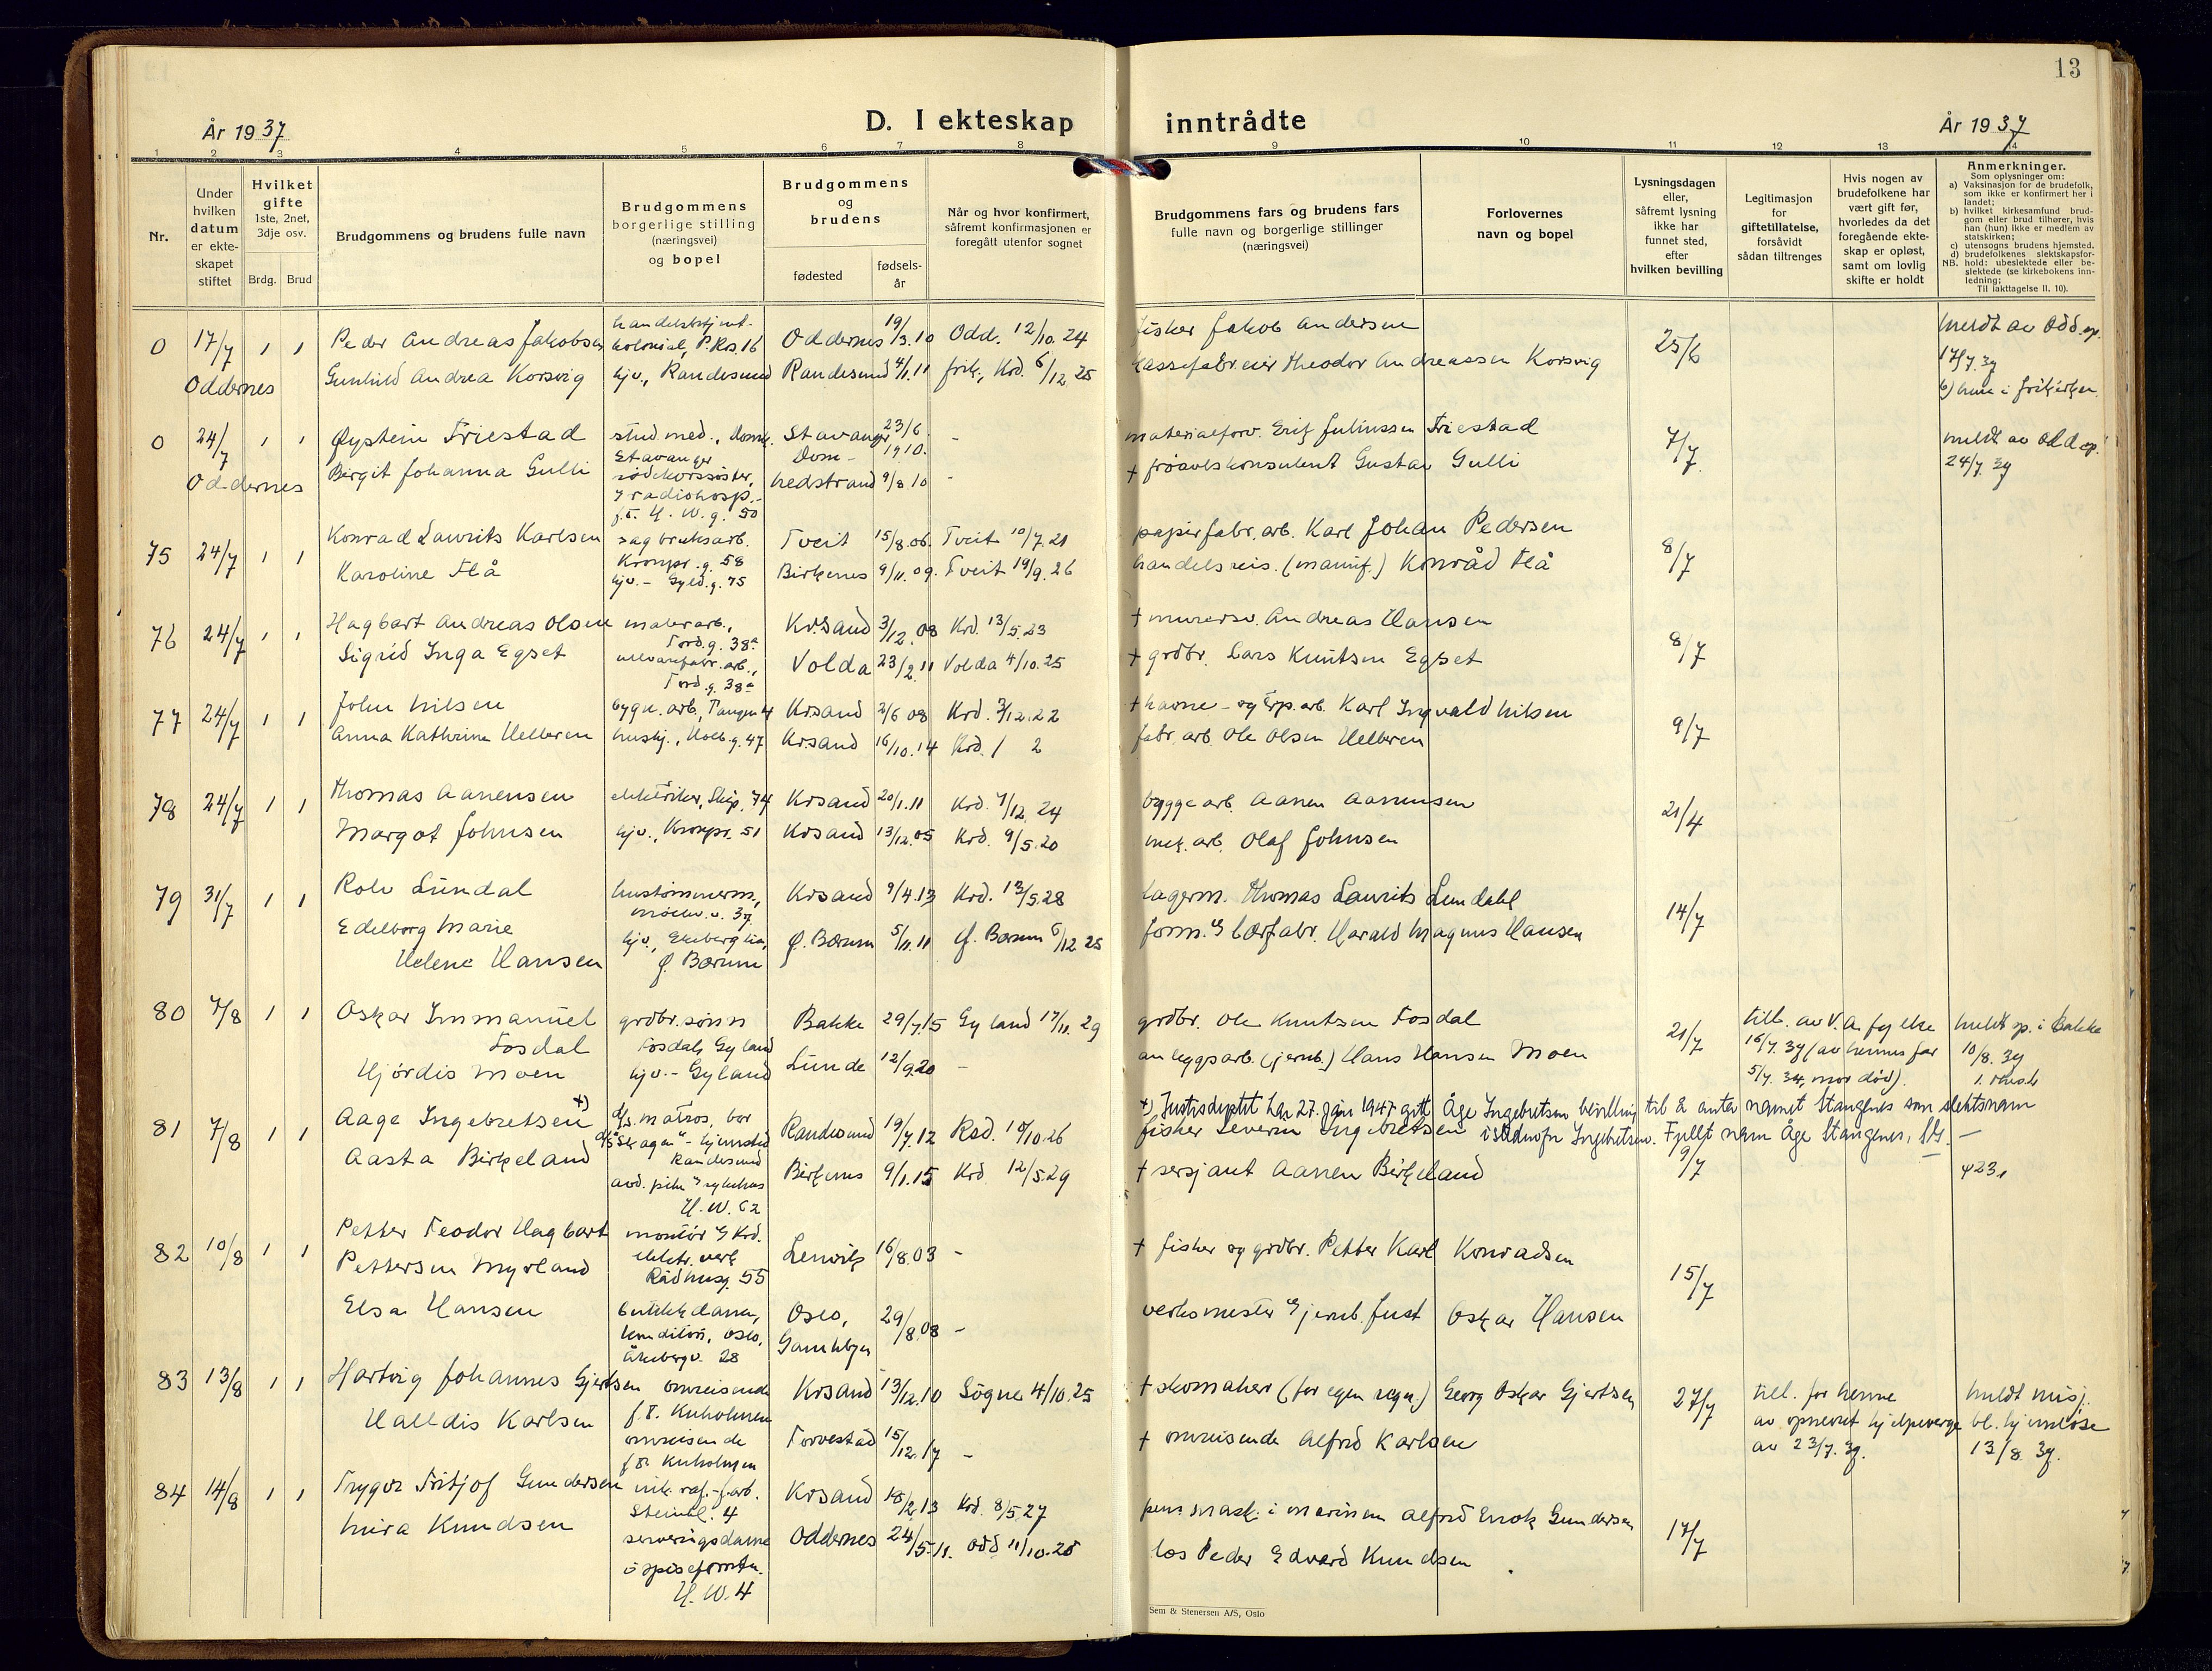 13
År 1937
D. I ekteskap inntrådte
År 1937
1 2 3 4 5 6 7 8 9 10 11 12 13 14
Nr.
Under hvilken datum er ekteskapet stiftet
Hvilket gifte 1ste, 2net, 3dje osv.
Brdg. Brud
Brudgommens og brudens fulle navn
Brudgommens borgerlige stilling (næringsvei) og bopel
Brudgommens og brudens
fødested
fødselsår
Når og hvor konfirmert, såfremt konfirmasjonen er foregått utenfor sognet
Brudgommens fars og brudens fars fulle navn og borgerlige stillinger (næringsvei)
Forlovernes navn og bopel
Lysningsdagen eller, såfremt lysning ikke har funnet sted, efter hvilken bevilling
Legitimasjon for giftetillatelse, forsåvidt sådan tiltrenges
Hvis nogen av brudefolkene har vært gift før, hvorledes da det foregående ekteskap er opløst, samt om lovlig skifte er holdt
Anmerkninger.
Som oplysninger om:
a) Vaksinasjon for de brudefolk, som ikke er konfirmert her i landet;
b) hvilket kirkesamfund brudgom eller brud tilhører, hvis han (hun) ikke er medlem av statskirken;
c) utensogns brudens hjemsted.
d) brudefolkenes slektskapsforhold: ubeslektede eller beslektede (se kirkebokens innledning;
NB. Til iakttagelse II, 10).
0 17/7 1 1 Peder Andreas Jakobsen handelsbetjent- kolonial, P.Krs. 16 Oddernes 19/3.10 Odd. 12/10.24 fisker Jakob Andersen 25/6 meldt av Odd. sp. 17/7.37
Oddernes Gunhild Andrea Korsvig hjv., Randesund Randesund 4/1.11 frik., Krd. 6/12 25 kassefabr.eier Theodor Andreassen Korsvig b) hun i frikirken
0 24/7 1 1 Øystein Friestad stud.med., Domk. Stavanger Stavanger Dom- 23/6 1910. - materialforv. Erik Juliussen Friestad 7/7 meldt av Odd sp. 24/7 37
Oddernes Birgit Johanna Gulli rødekorssøster, radiohosp.- f.t. H.W.g. 50 Nedstrand 9/8 10 - + frøavlskonsulent Gustav Gulli
75 24/7 1 1 Konrad Laurits Karlsen sagbruksarb. Kronpr.g. 58 Tveit 15/8.06. Tveit 10/7.21 papirfabr.arb. Karl Johan Pedersen 8/7
Karoline Flå hjv.- Gyld.g. 75 Birkenes 9/11.09. Tveit 19/9.26 handelsreis. (manuf.) Konråd Flå
76 24/7 1 1 Hagbart Andreas Olsen malerarb., Tord.g. 38a Kr.sand 3/12.08 Krd. 13/5.23 + murersv. Andreas Hansen 8/7
Sigrid Inga Egset ullvarefabr.arb., Tord.g. 38a Volda 23/2.11 Volda 4/10.25 + grdbr. Lars Knutsen Egset
77 24/7 1 1 John Nilsen bygn.arb., Tangen 4 Kr.sand 2/6 08 Krd. 3/12.22 + havne- og Exp.arb. Karl Ingvald Nilsen 9/7
Anna Kathrine Helleren hushj., Holb.g. 47 Kr.sand 16/10.14 Krd. / 2 fabr.arb. Ole Olsen Helleren
78 24/7 1 1 Thomas Aanensen elektriker, Skip. 74 Krsand 20/1.11 Krd. 7/12.24 byggearb. Aanen Aanensen 21/4
Margot Johnsen hjv., Kronpr. 51 Krsand 13/12.05 Krd. 9/5.20 mek.arb. Olaf Johnsen
79 31/7 1 1 Rolv Lundal hustømmerm., Møllev. v. 37 Krsand 9/4.13 Krd. 13/5.28 lagerm. Thomas Laurits Lundahl 14/7
Edelborg Marie Helene Hansen hjv., Ekeberg lia, Ø. Bærum Ø. Bærum 5/11.11 Ø. Bærum 6/12 25 form. Harald Magnus Hansen
80 7/8 1 1 Oskar Immanuel Fosdal grdbr.sønn Fosdal, Gyland Bakke 29/7.15 Gyland 17/11.29 grdbr. Ole Knutsen Fosdal 21/7 till. av V.A. fylke 16/7.37 (av hennes far 5/7.37, mor død). meldt sp. i Bakke 10/8.37
Hjördis Moen hjv.- Gyland Lunde 12/9.20 - anleggsarb. (jernb.) Hans Hansen Moen
+) Justisdeptet har 27. jan 1947 gitt Åge Ingebretsen bevilling til å anta namet Stangenes som slektsnam istedenfor Ingebretsen. Fullt nam Åge Stangenes,
81 7/8 1 1 Aage Ingebretsen +) d/s. matros, bor d/s "Skagen" - hjemsted Randesund Randesund 19/7.12 Krd. 10/10.26 fisker Severin Ingebretsen 9/7
Aasta Birkeland avd.pike sykehus H.W. 62 Birkenes 9/1.15 Krd 12/5.29 + sersjant Aanen Birkeland
82 10/8 1 1 Petter Teodor Hagbart Pettersen Myrland montør Krd. elektr.verk Rådhusg. 55 Lenvik 16/8.03 - + fisker og grdbr. Petter Karl Konradsen 15/7
Elsa Hansen butikkdame, konditori, Oslo, Åkebergv. 28 Oslo, Gamlebyen 29/8.08 - verksmester jernb. Just Oskar Hansen
83 13/8 1 1 Hartvig Johannes Gjertsen omreisende f.t. Kuholmen Krsand 13/12.10 Søgne 4/10.25 + skomaker (for egen regn.) Georg Oskar Gjertsen 27/7 till. for henne av opnevnt hjelpeverge av 23/7.37. meldt misj. bl. hjemløse 13/8.37.
Halldis Karlsen omreisende f.t. Kuholmen Torvestad 15/12.17 - + omreisende Alfred Karlsen
84 14/8 1 1 Trygve Fritjof Gundersen nik.raf.-f.arb. Steinkl. 4 Krsand 18/2.13 Krd. 8/5.27 pens.mask. i marinen Alfred Enok Gundersen 17/7
Mira Knudsen serveringsdame H.W. 4 Oddernes 24/5.11. Odd 11/10.25 los Peder Edvard Knudsen
Sem & Stenersen A/S, Oslo